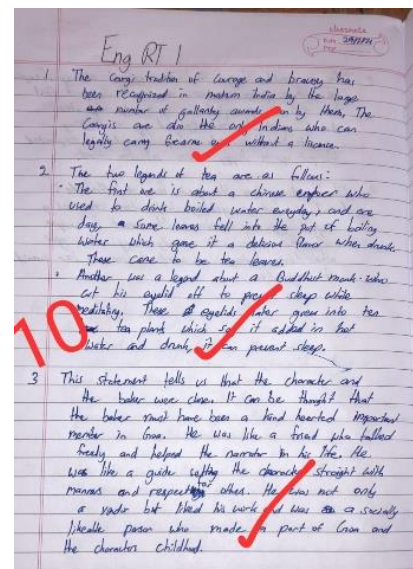 classmate
Date 29/7/21
Page
Eng RT 1
1 The Coorgi tradition of courage and bravery has
been recognized in modern India by the large
number of gallantry awards by them. The
Coorgis are also the only Indians who can
legally carry firearms without a license.
2 The two legends of tea are as follows:
• The first one is about a chinese who
used to drink boiled water everyday, and one
day, some leaves fell into the pot of boiling
water which gave it a delicious flavor when drunk.
These came to be tea leaves.
• Another was a legend about a Buddhist monk who
cut his eyelid off to sleep while
meditating. These eyelids later grew into ten
tea plants which it added in hot
water and drunk, it can prevent sleep.
10
3 This statement tells us that the character and
the baker were close. It can be thought that
the baker must have been a kind hearted important
member in Goa. He was like a friend who talked
freely and helped the narrator in his life. He
was like a guide the character straight with
manners and respect for others. He was not only
a vendor but liked his work and was a socially
likeable person who made a part of Goa and
the characters childhood.